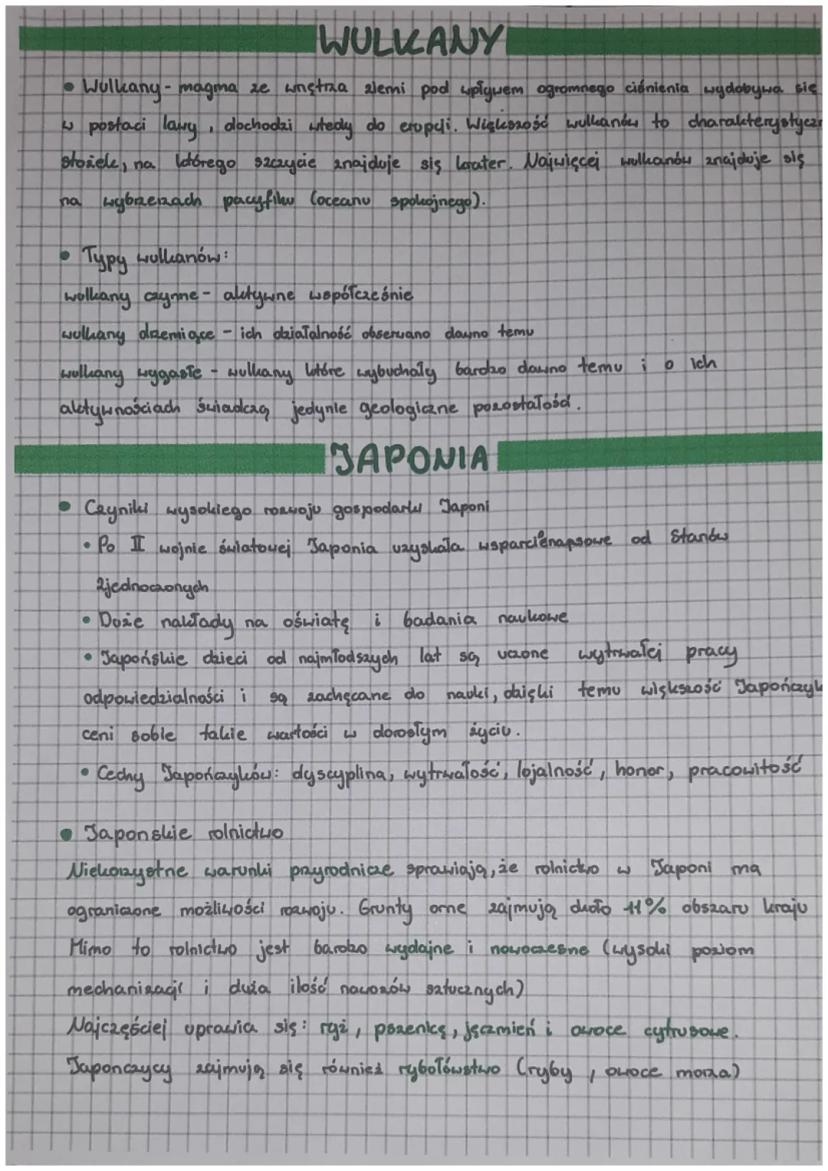 WULKANY
• Wulkany - magma ze wnętrza ziemi pod wpływem ogromnego ciśnienia wydobywa się
w postaci lawy, dochodzi wtedy do erupcji. Większość wulkanów to charakterystycz
stożek, na którego szczycie znajduje się krater. Najwięcej wulkanów znajduje się
na wybrzeżach pacyfiku (oceanu spokojnego).
• Typy wulkanów:
wulkany czynne - aktywne współcześnie
wulkany drzemiące - ich działalność obserwano dawno temu
wulkany wygasłe - wulkany które wybuchały bardzo dawno temu i o ich
aktywnościach świadczą jedynie geologiczne pozostałość.
JAPONIA
• Czyniki wysokiego rozwoju gospodarki Japoni
• Po II wojnie światowej Japonia uzyskała wsparcie od Stanów
Zjednoczonych
• Duże nakłady na oświatę i badania naukowe
• Japońskie dzieci od najmłodszych lat są uczone wytrwałej pracy
odpowiedzialności i są zachęcane do nauki, dzięki temu większość Japończyk
ceni sobie takie wartości w dorosłym życiu.
• Cechy Japończyków: dyscyplina, wytrwałość, lojalność, honor, pracowitość
• Japonskie rolnictwo
Niekorzystne warunki przyrodnicze sprawiają, że rolnictwo w Japoni ma
ograniczone możliwości rozwoju. Grunty orne zajmują około 11% obszaru kraju
Mimo to rolnictwo jest bardzo wydajne i nowoczesne (wysoki poziom
mechanizacji i duża ilość nawozów sztucznych)
Najczęściej uprawia się: ryż, pszenicę, jęczmień i owoce cytrusowe.
Japonczycy zajmują się również rybołówstwo (ryby, owoce morza)